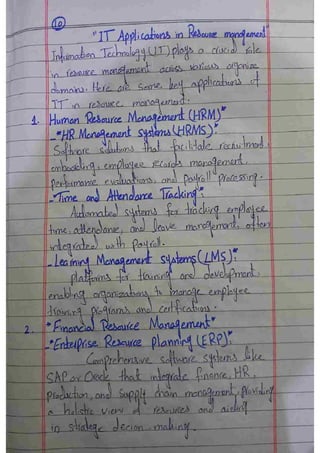 10
"IT Applications in Resource management"
Information Technology (IT) plays a crucial role
in resource management across various organize
domains. Here are some key applications of
IT in resource management.
1. Human Resource Management (HRM)"
- "HR Management systems (HRMS):"
Software solutions that facilitate recruitment,
onboarding, employee records management,
performance evaluations, and payroll processing.
- "Time and Attendance Tracking":
Automated systems for tracking employee
time, attendance, and leave management, often
integrated with payroll.
- Learning Management systems (LMS):"
platforms for training and development,
enabling organizations to manage employee
training programs and certifications.
2. "Financial Resource Management"
- "Enterprise Resource planning (ERP):"
Comprehensive software systems like
SAP or Oracle that integrate finance, HR,
production, and supply chain management, providing
a holistic view of resources and aiding
in strategic decion-making.